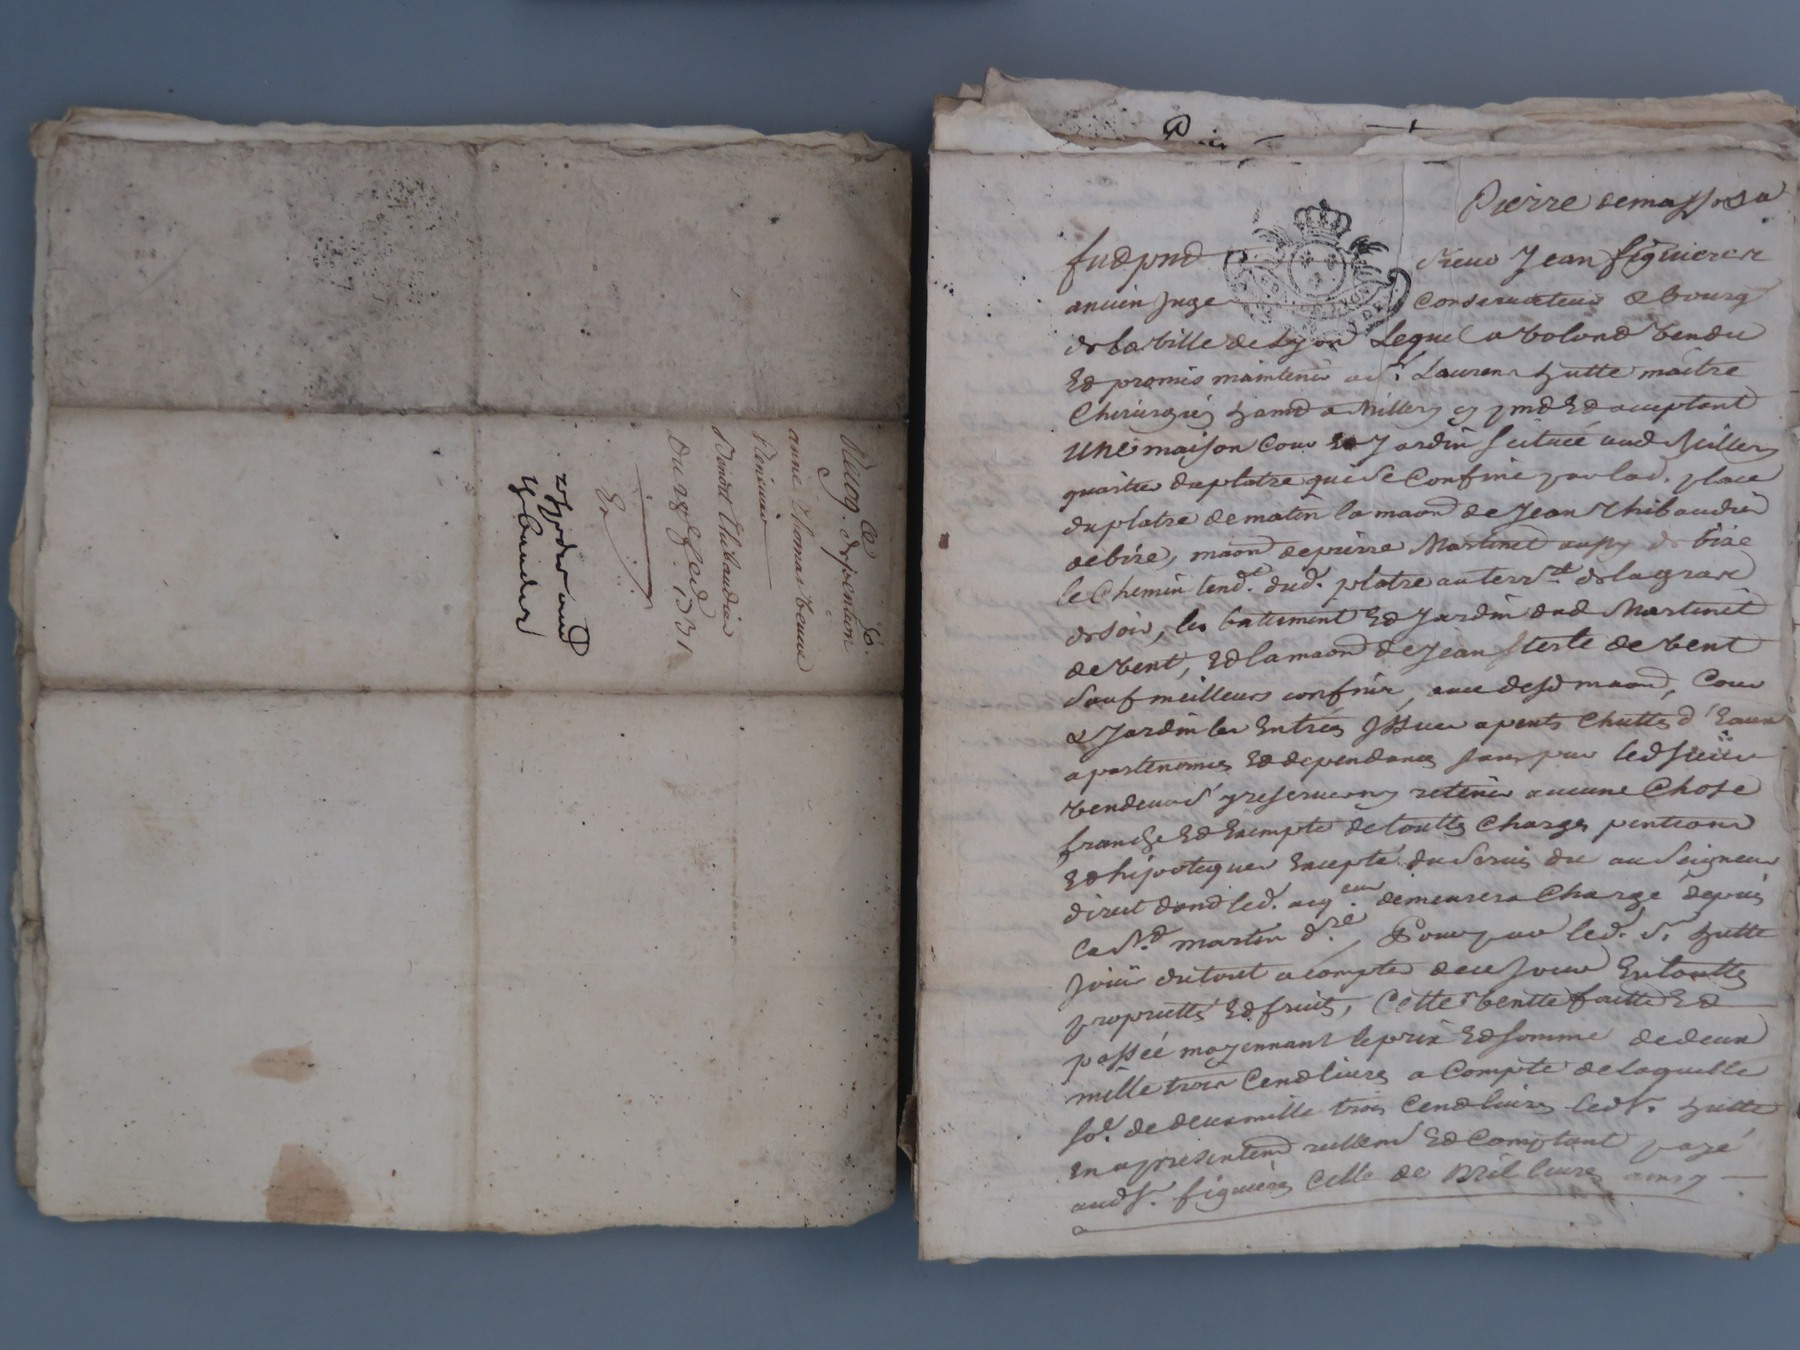 Recog.ce de pention
anne Thomas veuve
Benoist thibaudier
Du 28e feb. 1731
Pierre
fud pnd sieur Jean figuieres
ancien Juge Conservateur & bourg
de la ville de Lyon Lequel a vold vendu
Ed promis maintenir a sr. Laurens hutte maître
Chirurgien hamd a Millery cy pnd Ed acceptant
une maison Cour Ed Jardin scitué aud Millery
quartier du platre qui se Confine par lad. place
du platre de matin la maond de Jean Thibaudier
de bize, maond de pierre Martinet aussy de bize
le Chemin tend.t dud. platre au terr.
de soir, les batiment Ed Jardin dud Martinet
de vent, Ed la maond de Jean de vent
sauf meilleurs confins, avec desd maond, Cour
& Jardin les Entrés Issues apents Chuttes d'Eaux
apartenances Ed dependances sans par led sieur
vendeur y reserver ny retenir aucune Chose
franche Ed Exempte de touttes Charges pentions
Ed hipoteques Excepté du servis du au Seigneur
direct dond led. acq.eur demeurera Chargé depuis
la st. martin d.re, Pour par led. sr. hutte
jouir du tout a compter de ce jour En touttes
proprietté Ed fruits, Cette vente faitte Ed
passée moyennant le prix Ed somme de deux
mille trois Cend livres a Compte de laquelle
so.e de deux mille trois Cend livres led sr. hutte
en a presentemd reellemd Ed Comptant payé
aud sr. figuieres Celle de Mil livres ainsy